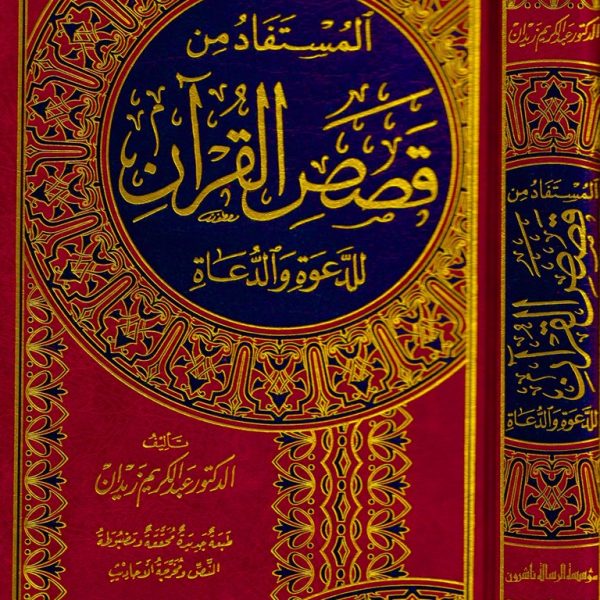 المُسْتَفَادُ مِن
قَصَصِ القُرْآنِ
لِلدَّعْوَةِ وَالدُّعَاةِ
تأليف
الدكتور عبد الكريم زيدان
طبعةٌ جديدةٌ محققةٌ ومضبوطة
النصّ ومخرجة الأحاديث
الدكتور عبد الكريم زيدان
المُسْتَفَادُ مِن
قَصَصِ القُرْآنِ
لِلدَّعْوَةِ وَالدُّعَاةِ
مؤسسة الرسالة ناشرون